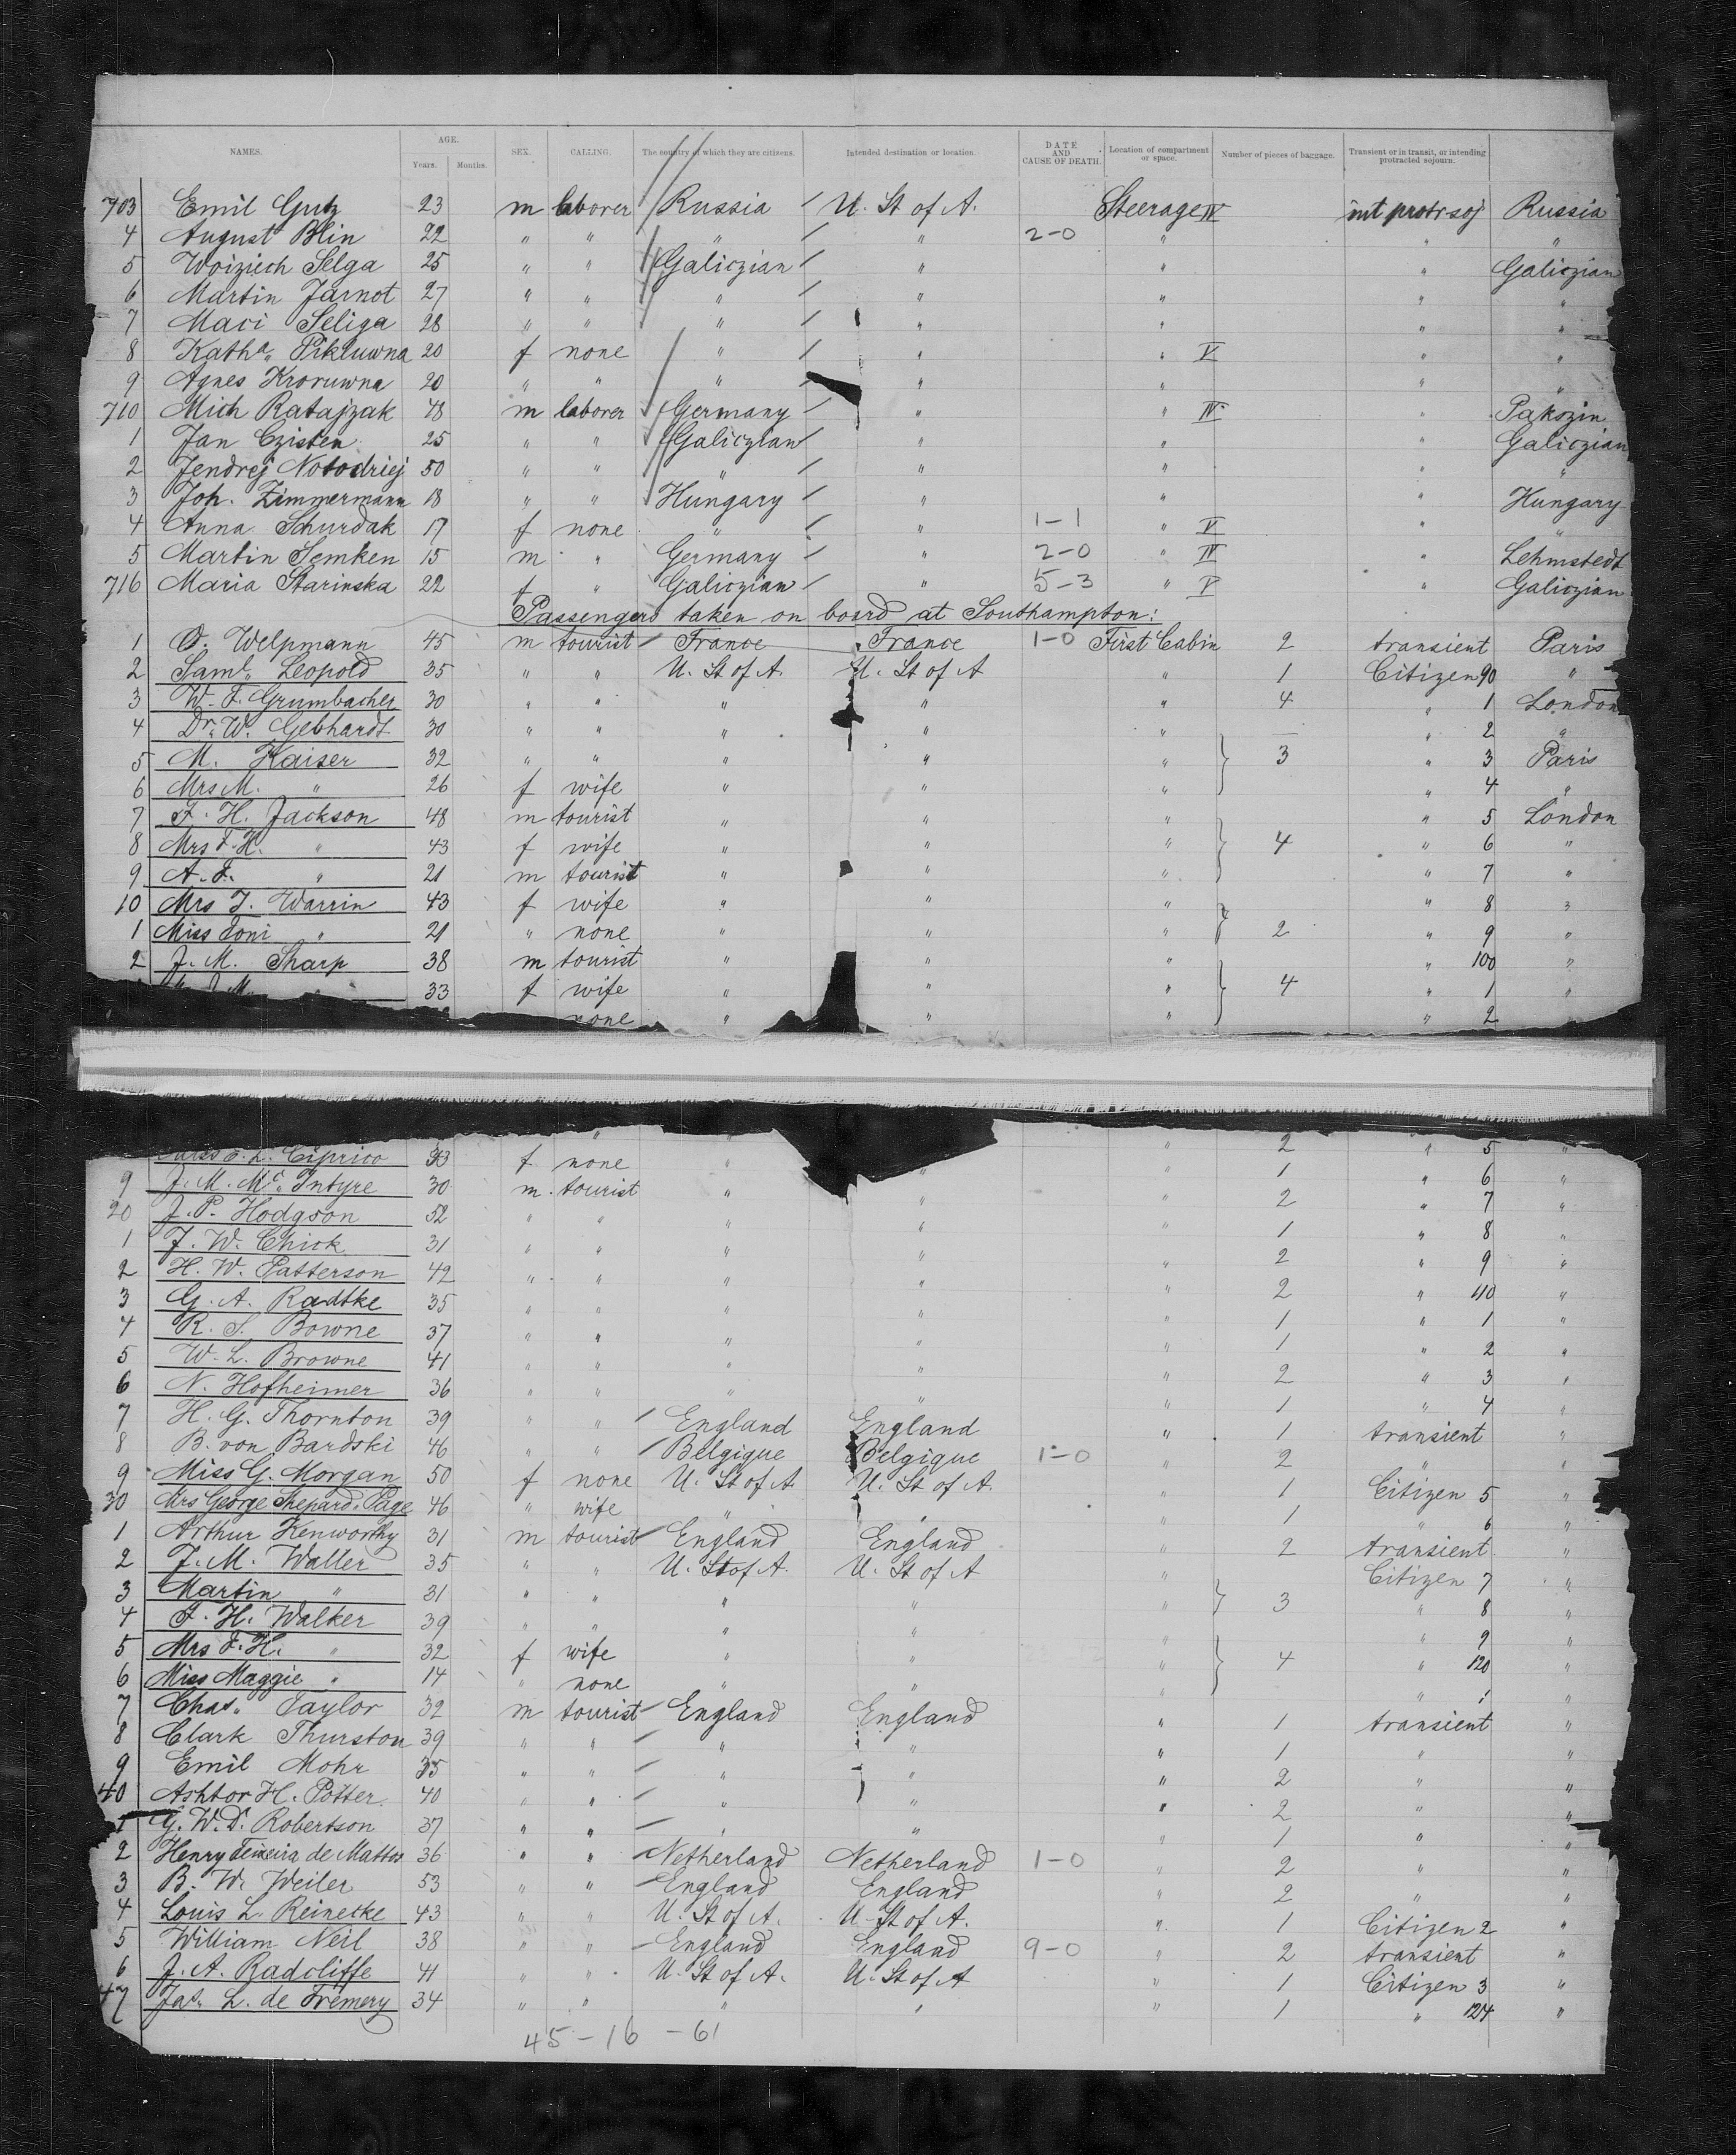 NAMES. AGE. Years. Months. SEX. CALLING. The country of which they are citizens. Intended destination or location. DATE AND CAUSE OF DEATH. Location of compartment or space. Number of pieces of baggage. Transient or in transit, or intending protracted sojourn.
703 Emil Gutz 23 m laborer / Russia / U. St of A. Steerage IV int protr soj Russia
4 August Blin 22 " " " / " 2-0 " " "
5 Woiziech Selga 25 " " Galiczian / " " " Galiczian
6 Martin Jarnot 27 " " " / " " " "
7 Maci Seliga 28 " " " / " " " "
8 Katha. Pikluwna 20 f none " / " " V " "
9 Agnes Kroruwna 20 " " " / " " " "
710 Mich Ratajzak 48 m laborer Germany / " " IV " Pakozin
1 Jan Czisten 25 " " Galiczian / " " " Galiczian
2 Jendrej Notodriej 50 " " " / " " " "
3 Joh. Zimmermann 18 " " Hungary / " " " Hungary
4 Anna Schurdak 17 f none " / " 1-1 " V " "
5 Martin Semken 15 m " Germany / " 2-0 " IV " Lehmstedt
716 Maria Starinska 22 f " Galiczian / " 5-3 " V " Galiczian
Passengers taken on board at Southampton:
1 O. Welpmann 45 m tourist / France France 1-0 First Cabin 2 transient Paris
2 Saml. Leopold 35 " " U. St of A. U. St of A " 1 Citizen 90 "
3 W. F. Grumbacher 30 " " " " " 4 " 1 London
4 Dr. W. Gebhardt 30 " " " " " — " 2 "
5 M. Kaiser 32 " " " " " } 3 " 3 Paris
6 Mrs M. " 26 f wife " " " " 4 "
7 F. H. Jackson 48 m tourist " " " " 5 London
8 Mrs F. H. " 43 f wife " " " } 4 " 6 "
9 A. F. " 21 m tourist " " " " 7 "
10 Mrs J. Warrin 43 f wife " " " " 8 "
1 Miss Toni " 21 " none " " " } 2 " 9 "
2 J. M. Sharp 38 m tourist " " " " 100 "
33 f wife " " " } 4 " 1 "
none " " " " 2 "
" " 2 " 5 "
E. L. Ciprico 33 f none " " " 1 " 6 "
9 J. M. Mc. Intyre 30 m tourist " " " 2 " 7 "
20 J. P. Hodgson 52 " " " " " 1 " 8 "
1 J. W. Chick 31 " " " " " 2 " 9 "
2 H. W. Patterson 42 " " " " " 2 " 110 "
3 G. A. Radtke 35 " " " " " 1 " 1 "
4 R. S. Bowne 37 " " " " " 1 " 2 "
5 W. L. Browne 41 " " " " " 2 " 3 "
6 N. Hofheimer 36 " " " " " 1 " 4 "
7 H. G. Thornton 39 " " / England England " 1 transient "
8 B. von Bardski 46 " " / Belgique Belgique 1-0 " 2 " "
9 Miss G. Morgan 50 f none U. St of A. U. St of A. " 1 Citizen 5 "
30 Mrs George Shepard-Page 46 " wife " " " 1 " 6 "
1 Arthur Kenworthy 31 m tourist / England England " 2 transient "
2 J. M. Waller 35 " " U. St of A. U. St of A " Citizen 7 "
3 Martin " 31 " " " " " } 3 " 8 "
4 F. H. Walker 39 " " " " " " 9 "
5 Mrs F. H. " 32 f wife " " " } 4 " 120 "
6 Miss Maggie " 14 " none " " " " 1 "
7 Chas. Taylor 32 m tourist / England England " 1 transient "
8 Clark Thurston 39 " " / " " " 1 " "
9 Emil Mohr 35 " " / " " " 2 " "
40 Ashtor H. Potter 40 " " / " " " 2 " "
1 G. W. D. Robertson 37 " " / " " " 1 " "
2 Henry Teixeira de Mattos 36 " " Netherland Netherland 1-0 " 2 " "
3 B. W. Weiler 53 " " England England " 2 " "
4 Louis L. Reinecke 43 " " U. St of A. U. St of A. " 1 Citizen 2 "
5 William Neil 38 " " England England 9-0 " 2 transient "
6 J. A. Radcliffe 41 " " U. St of A. U. St of A " 1 Citizen 3 "
47 Jas. L. de Fremery 34 " " " " " 1 " 124 "
45-16 -61